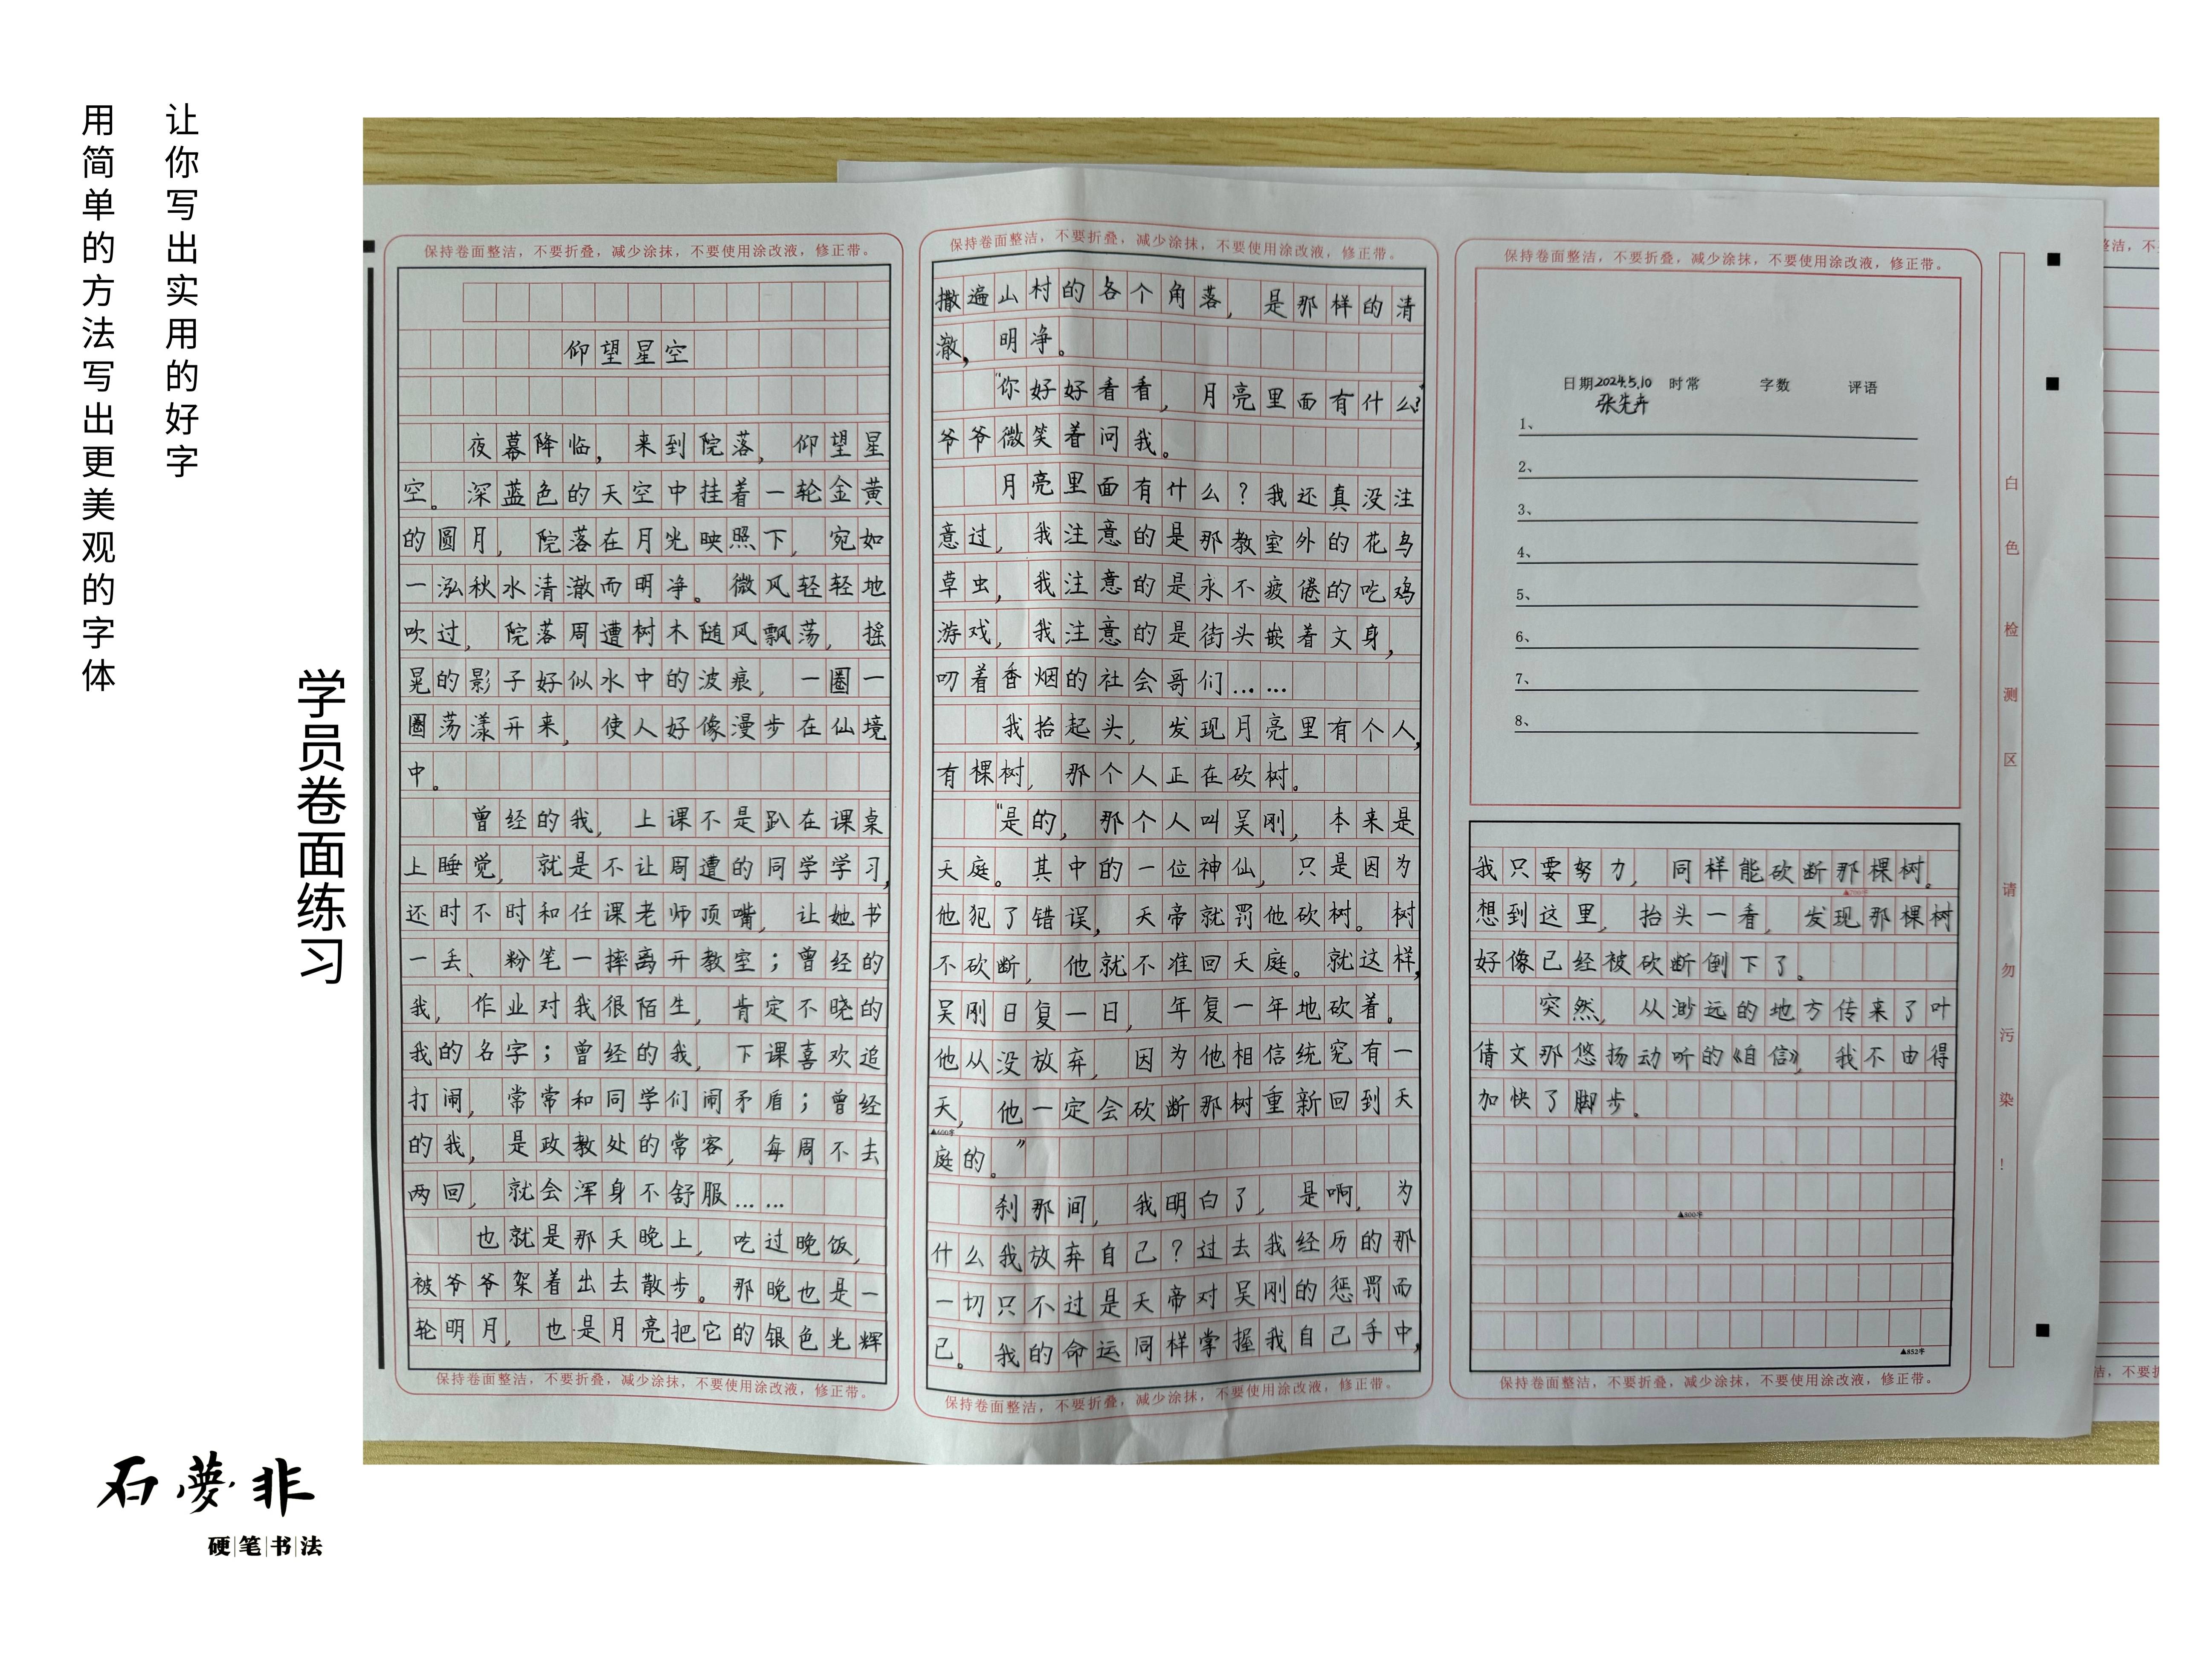 让你写出实用的好字
用简单的方法写出更美观的字体
学员卷面练习
石夢非
硬笔书法
保持卷面整洁，不要折叠，减少涂抹，不要使用涂改液，修正带。
仰望星空
夜幕降临，来到院落，仰望星
空。深蓝色的天空中挂着一轮金黄
的圆月，院落在月光映照下，宛如
一泓秋水清澈而明净。微风轻轻地
吹过，院落周遭树木随风飘荡，摇
晃的影子好似水中的波痕，一圈一
圈荡漾开来，使人好像漫步在仙境
中。
曾经的我，上课不是趴在课桌
上睡觉，就是不让周遭的同学学习，
还时不时和任课老师顶嘴，让她书
一丢、粉笔一摔离开教室；曾经的
我，作业对我很陌生，肯定不晓的
我的名字；曾经的我，下课喜欢追
打闹，常常和同学们闹矛盾；曾经
的我，是政教处的常客，每周不去
两回，就会浑身不舒服……
也就是那天晚上，吃过晚饭，
被爷爷架着出去散步。那晚也是一
轮明月，也是月亮把它的银色光辉
保持卷面整洁，不要折叠，减少涂抹，不要使用涂改液，修正带。
保持卷面整洁，不要折叠，减少涂抹，不要使用涂改液，修正带。
撒遍山村的各个角落，是那样的清
澈，明净。
“你好好看看，月亮里面有什么？”
爷爷微笑着问我。
月亮里面有什么？我还真没注
意过，我注意的是那教室外的花鸟
草虫，我注意的是永不疲倦的吃鸡
游戏，我注意的是街头嵌着文身，
叨着香烟的社会哥们……
我抬起头，发现月亮里有个人，
有棵树，那个人正在砍树。
“是的，那个人叫吴刚，本来是
天庭。其中的一位神仙，只是因为
他犯了错误，天帝就罚他砍树。树
不砍断，他就不准回天庭。就这样，
吴刚日复一日，年复一年地砍着。
他从没放弃，因为他相信统究有一
天，他一定会砍断那树重新回到天
▲600字
庭的。”
刹那间，我明白了，是啊，为
什么我放弃自己？过去我经历的那
一切只不过是天帝对吴刚的惩罚而
已。我的命运同样掌握我自己手中，
保持卷面整洁，不要折叠，减少涂抹，不要使用涂改液，修正带。
保持卷面整洁，不要折叠，减少涂抹，不要使用涂改液，修正带。
日期2024.5.10 时常 字数 评语
张先卉
1、
2、
3、
4、
5、
6、
7、
8、
我只要努力，同样能砍断那棵树。
▲700字
想到这里，抬头一看，发现那棵树
好像已经被砍断倒下了。
突然，从渺远的地方传来了叶
倩文那悠扬动听的《自信》，我不由得
加快了脚步。
▲800字
▲852字
保持卷面整洁，不要折叠，减少涂抹，不要使用涂改液，修正带。
白色检测区 请勿污染！
整洁，不
洁，不要折